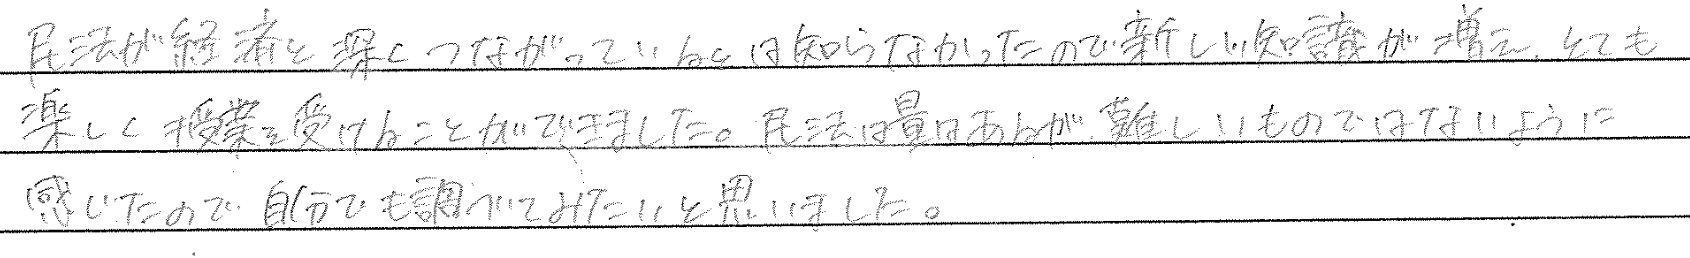 民法が経済と深くつながっているとは知らなかったので新しい知識が増え、とても
楽しく授業を受けることができました。民法は量はあるが、難しいものではないように
感じたので、自分でも調べてみたいと思いました。